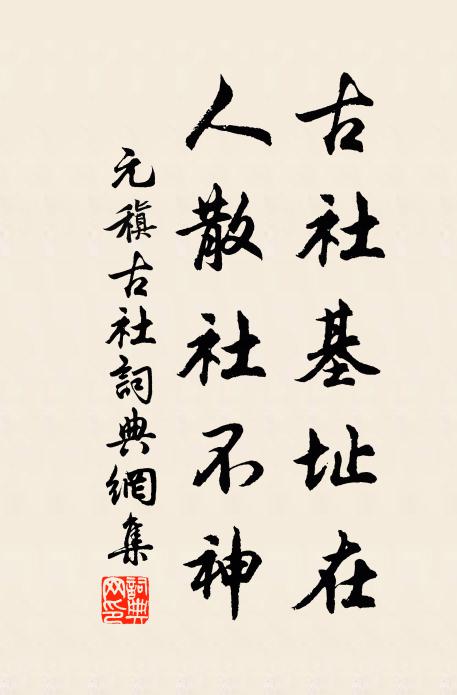 古社基址在
人散社不神
元稹古社詞典網集
詞典網印